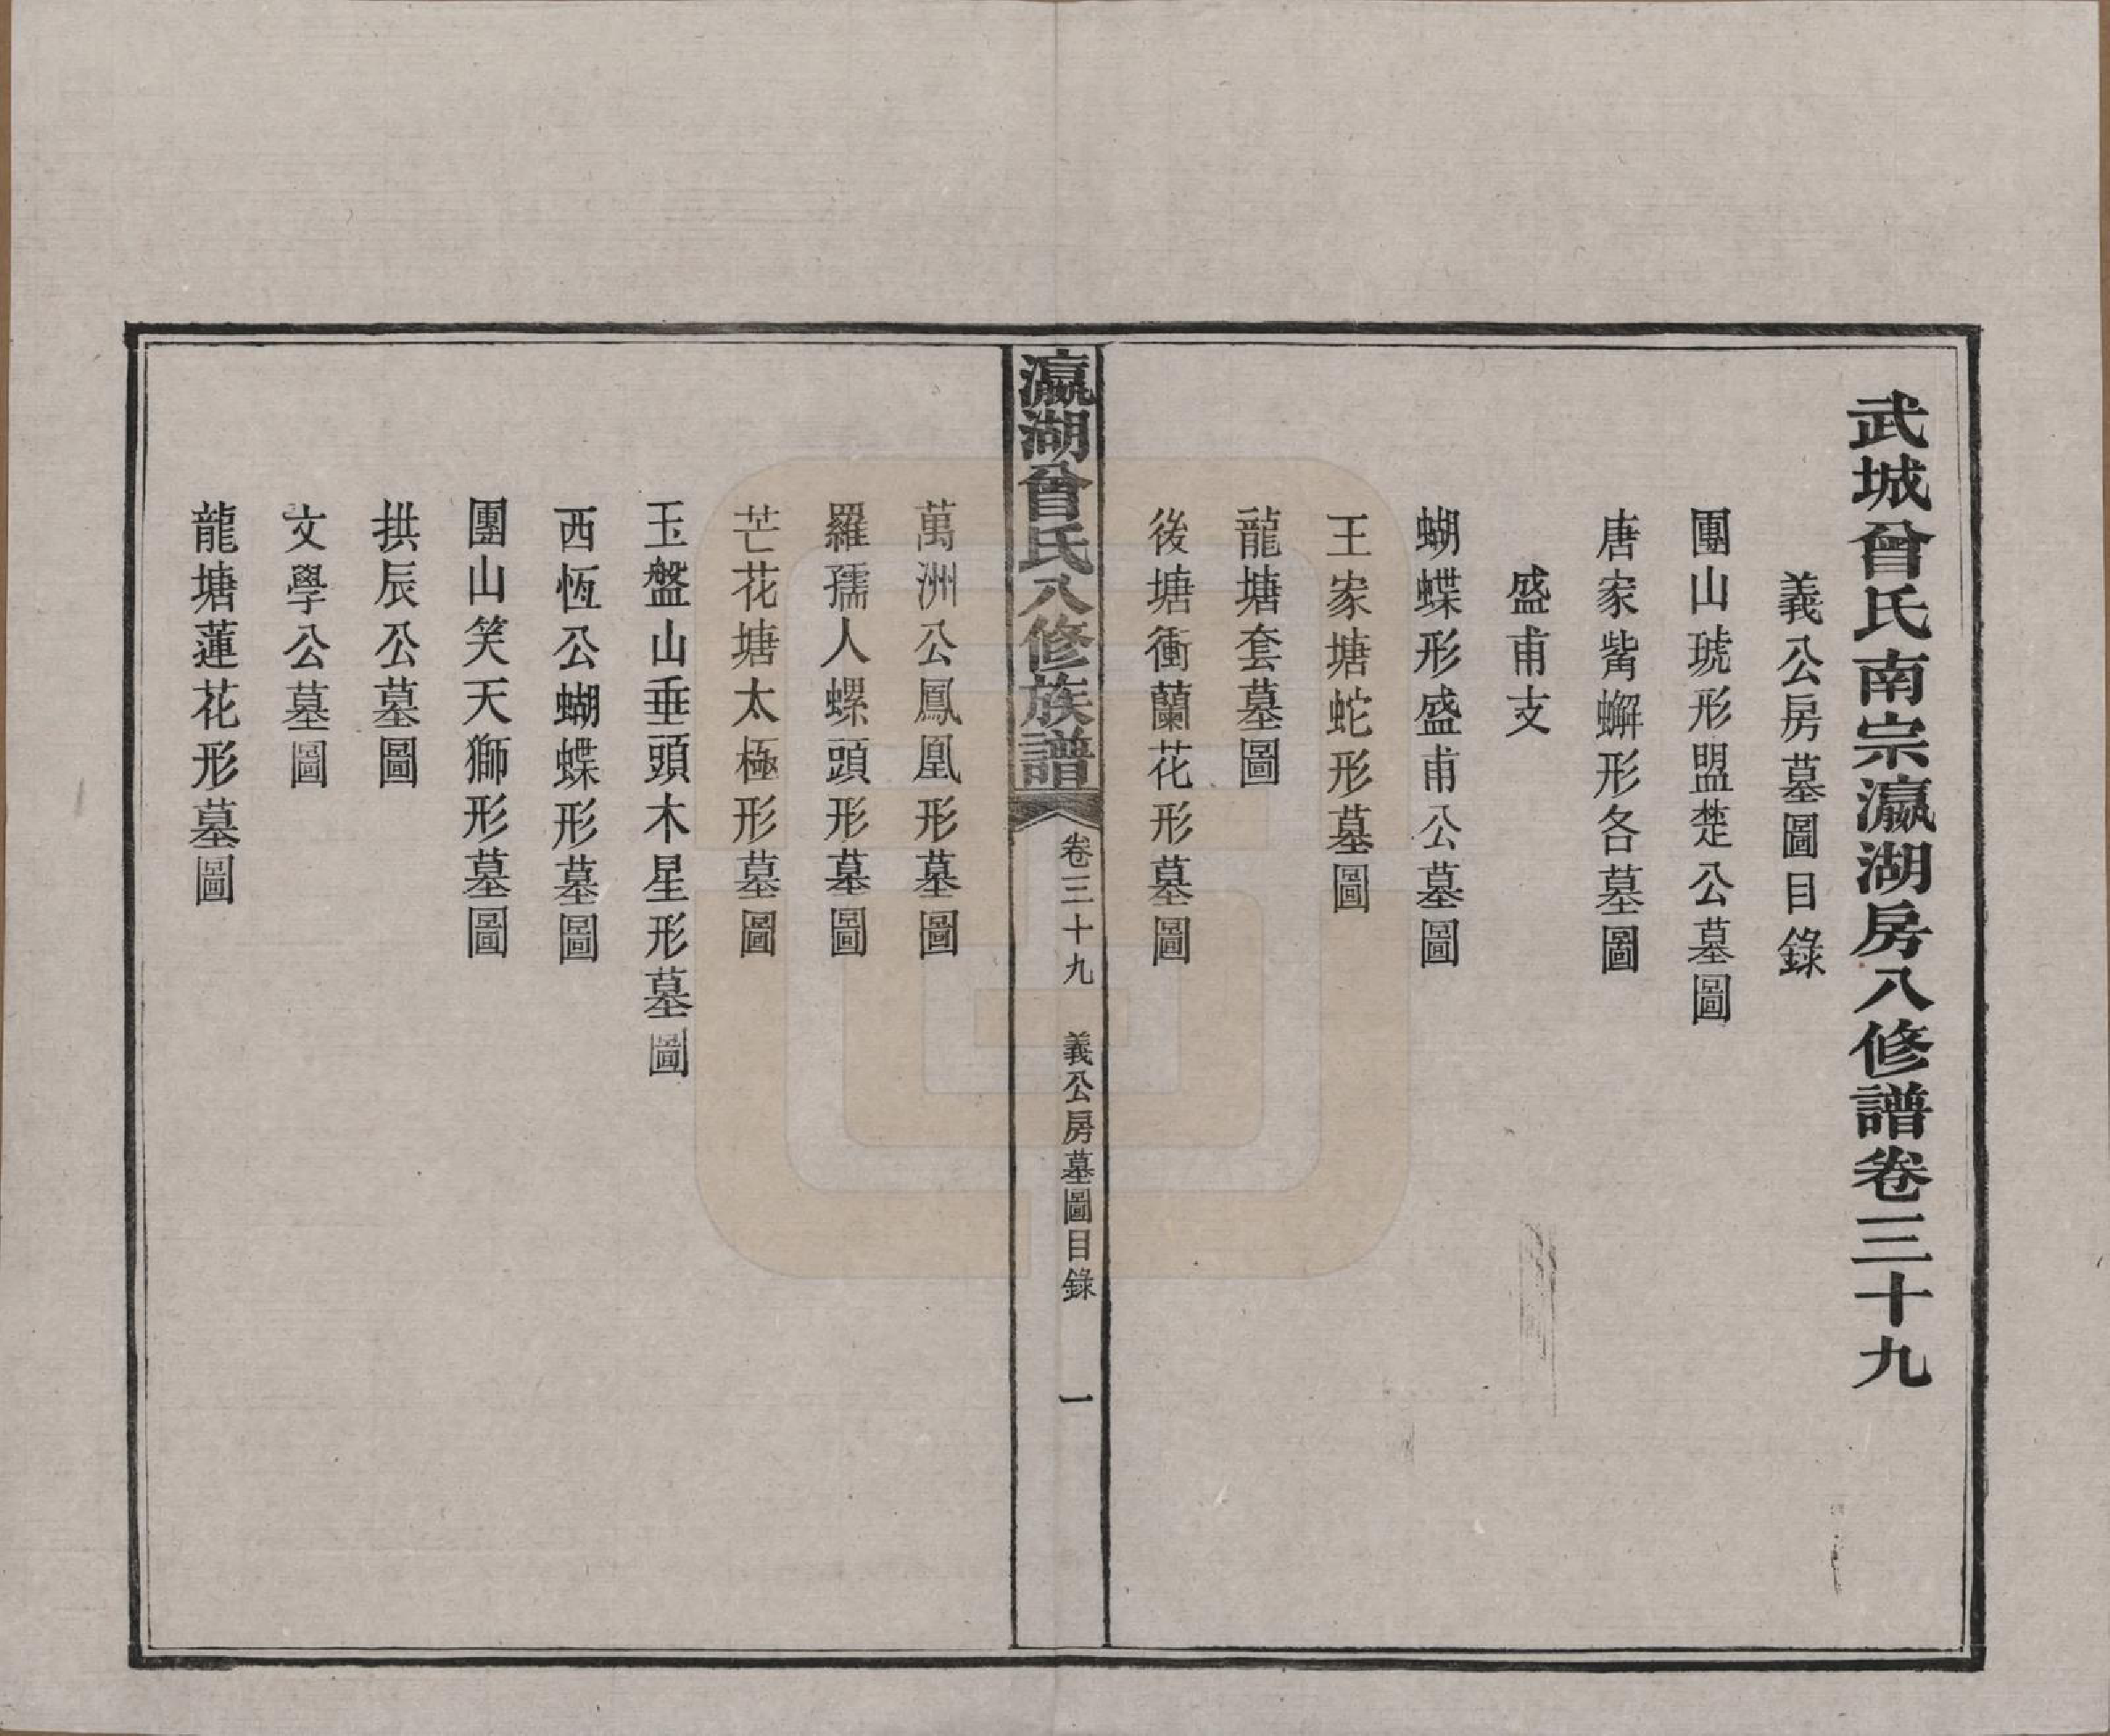 武城曾氏南宗瀛湖房八修譜卷三十九
義公房墓圖目錄
團山琥形盟楚公墓圖
唐家觜蠏形各墓圖
盛甫支
蝴蝶形盛甫公墓圖
王家塘蛇形墓圖
龍塘套墓圖
後塘衝蘭花形墓圖
瀛湖曾氏八修族譜
卷三十九
義公房墓圖目錄
一
萬洲公鳳凰形墓圖
羅孺人螺頭形墓圖
芒花塘太極形墓圖
玉盤山垂頭木星形墓圖
西恆公蝴蝶形墓圖
團山笑天獅形墓圖
拱辰公墓圖
文學公墓圖
龍塘蓮花形墓圖